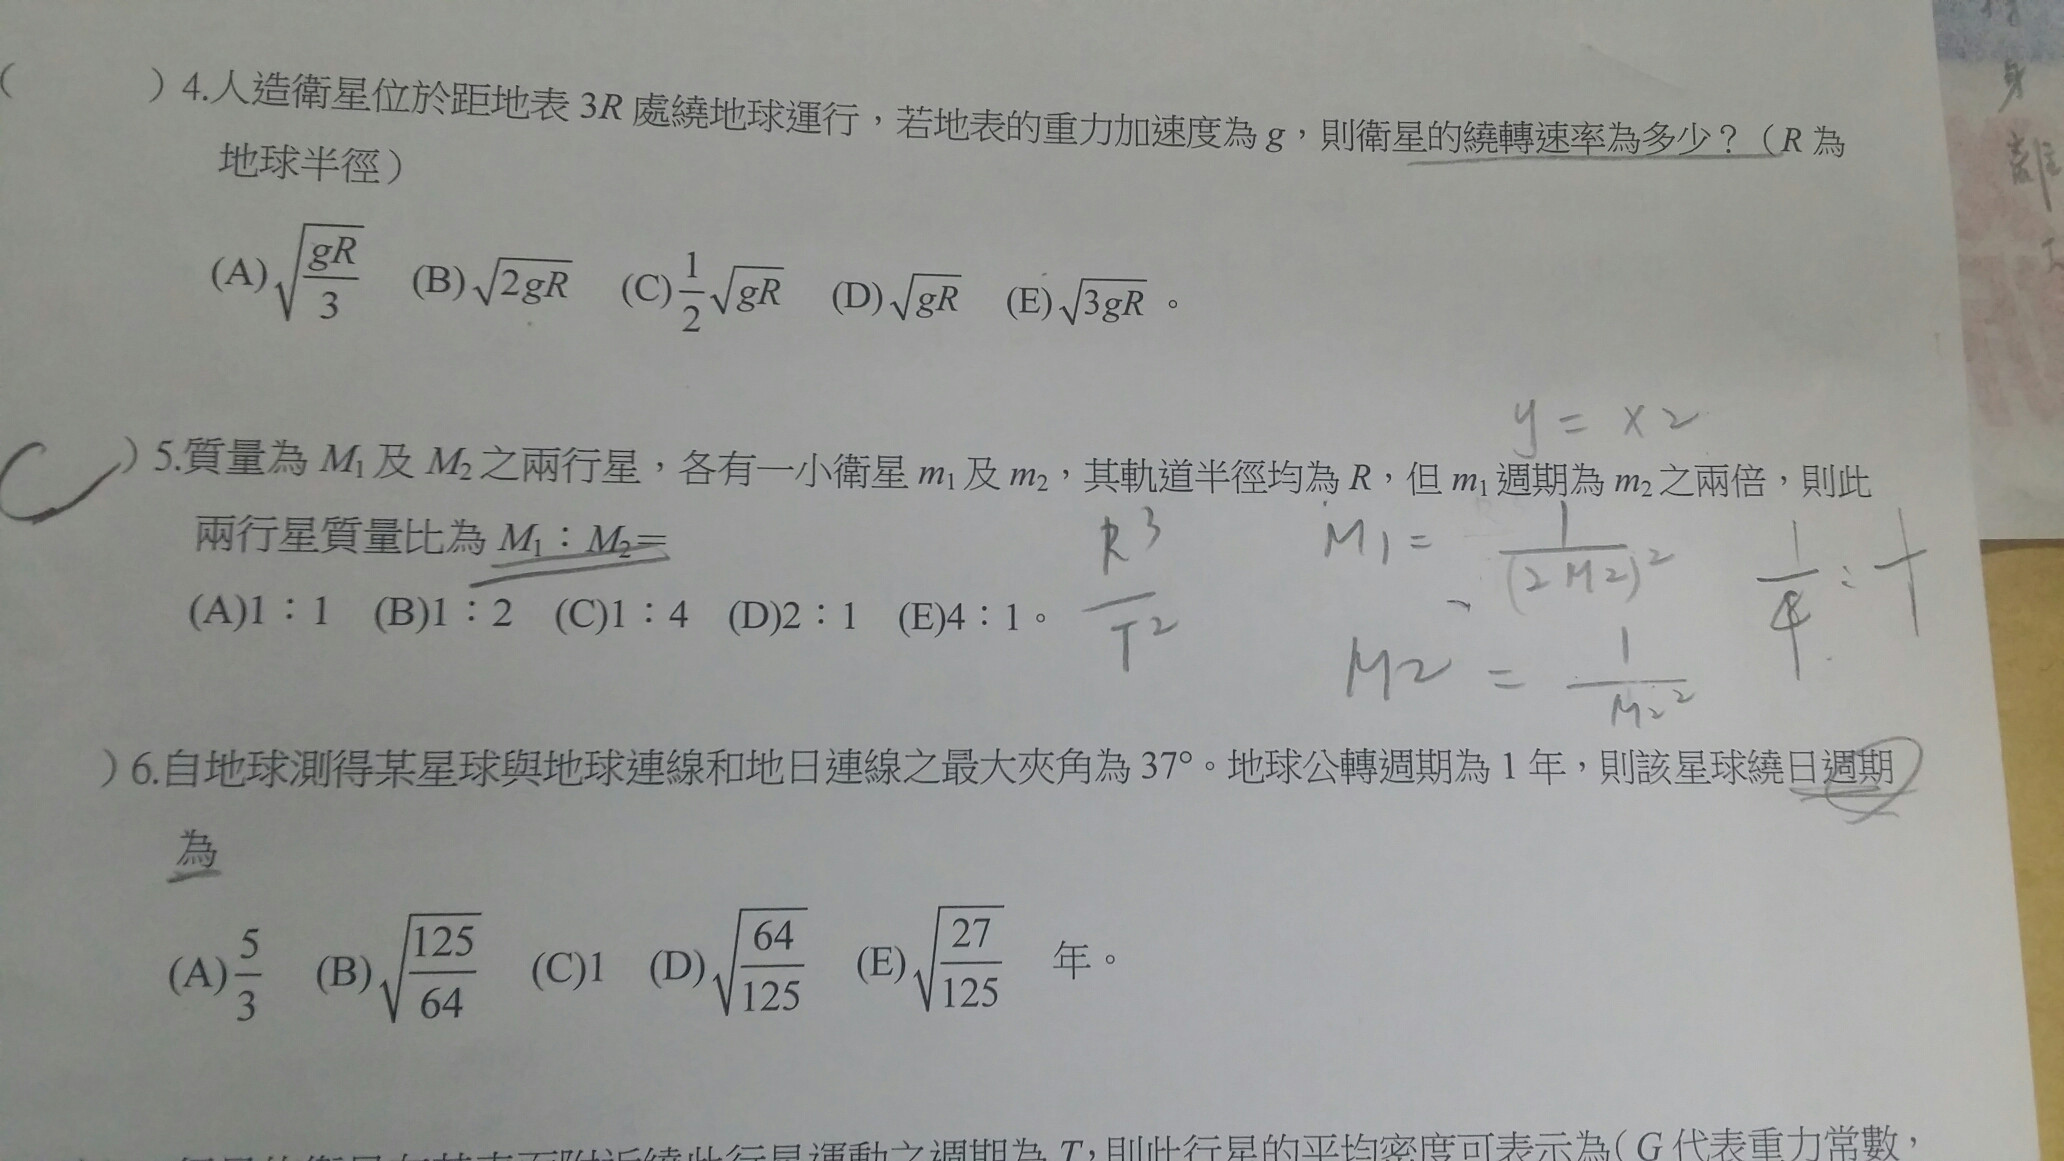 ( )4.人造衛星位於距地表 3R 處繞地球運行,若地表的重力加速度為 g,則衛星的繞轉速率為多少?(R 為
地球半徑)
(A)√(gR/3) (B)√(2gR) (C)1/2√(gR) (D)√(gR) (E)√(3gR)。
y = x2
C )5.質量為 M₁ 及 M₂ 之兩行星,各有一小衛星 m₁ 及 m₂,其軌道半徑均為 R,但 m₁ 週期為 m₂ 之兩倍,則此
兩行星質量比為 M₁:M₂=
(A)1:1 (B)1:2 (C)1:4 (D)2:1 (E)4:1。
R³/T²
M1 = 1/(2M2)²
M2 = 1/M2²
1/4 : 1
)6.自地球測得某星球與地球連線和地日連線之最大夾角為 37°。地球公轉週期為 1 年,則該星球繞日週期
為
(A)5/3 (B)√(125/64) (C)1 (D)√(64/125) (E)√(27/125) 年。
此行星運動之週期為 T,則此行星的平均密度可表示為(G 代表重力常數,